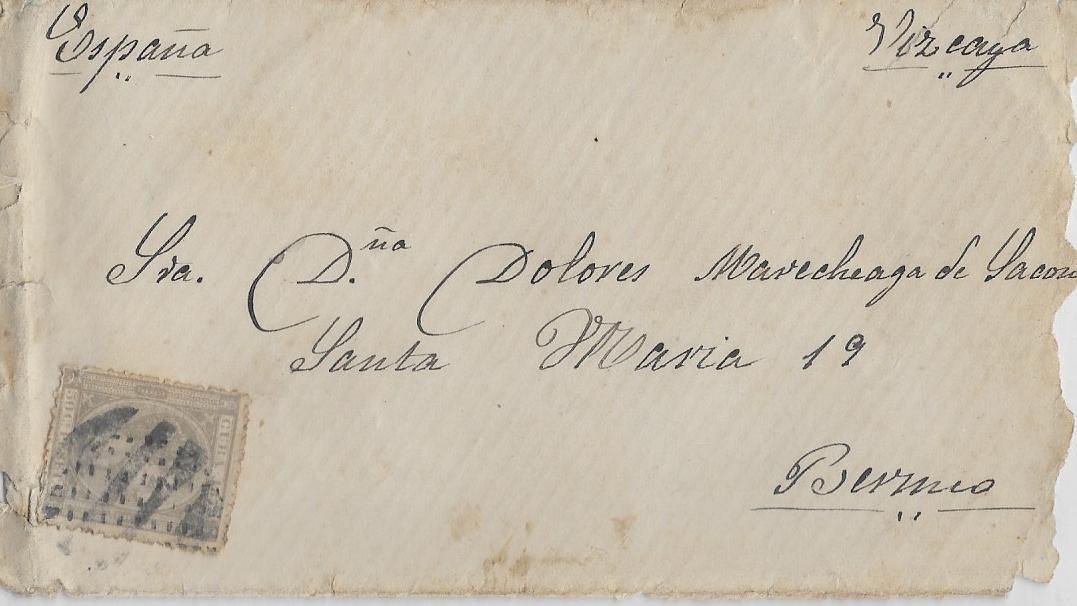 España
Vizcaya
Sra. D.ña Dolores Marecheaga de
Santa Maria 19
Bermeo
CUBA